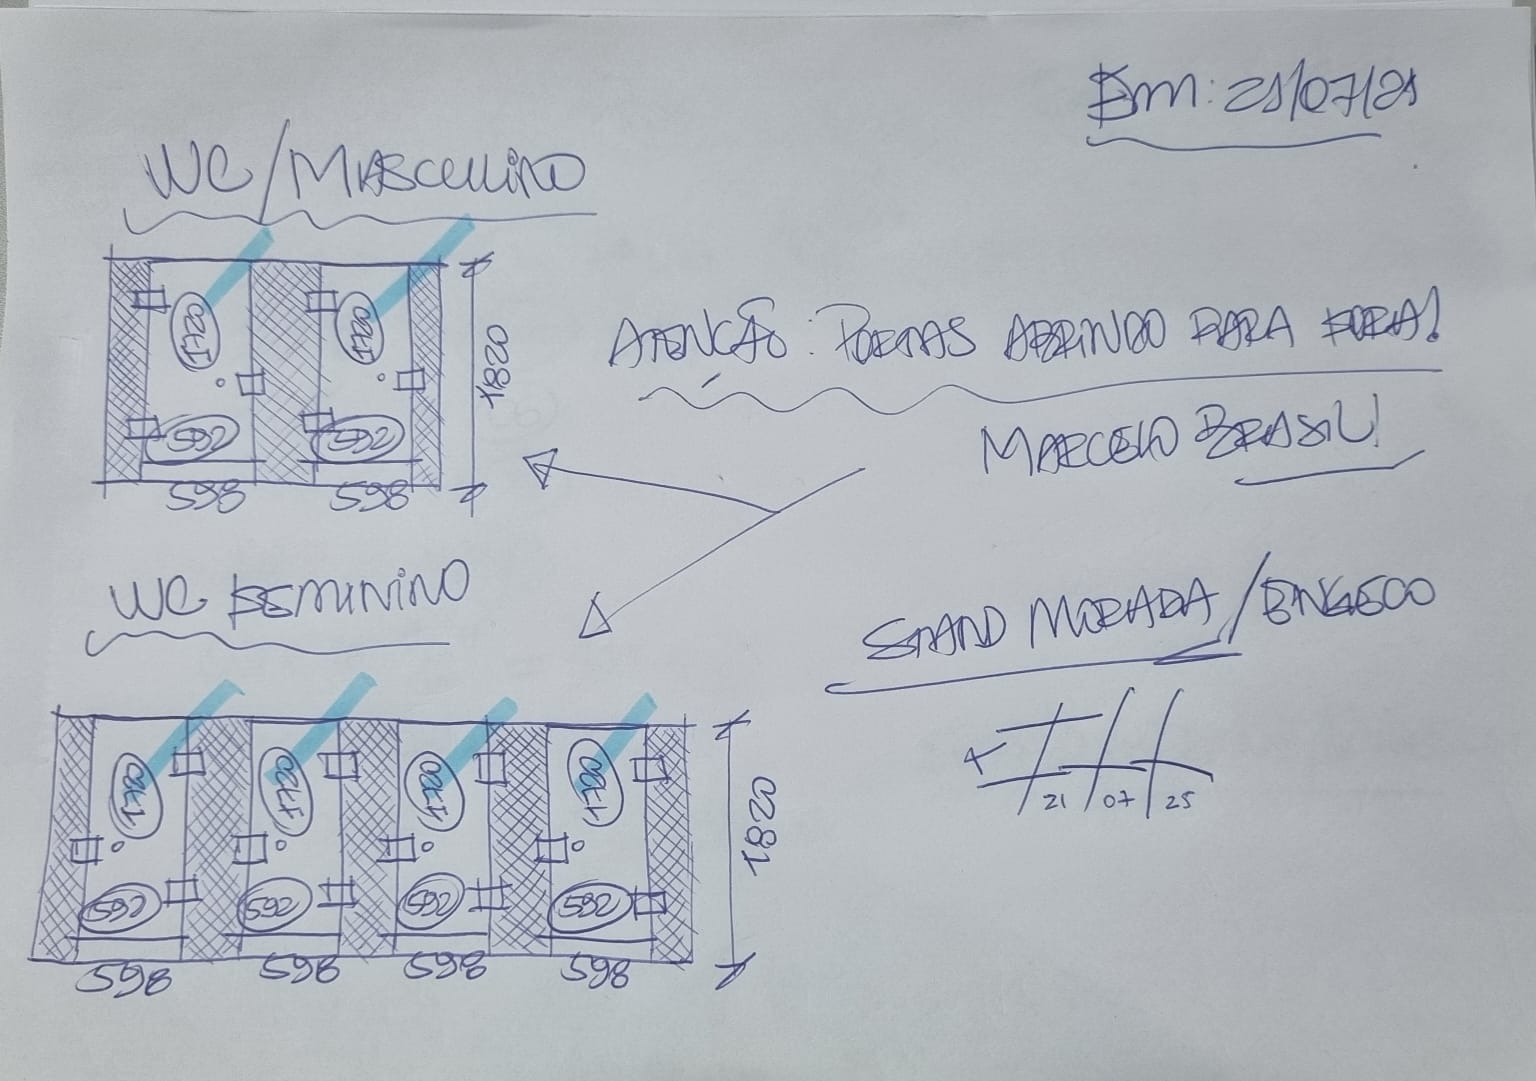 Em: 21/07/21
WC/MASCULINO
1720 1720
592 592
598 598
1820
ATENÇÃO: PORTAS ABRINDO PARA FORA!
MARCELO BRASIL!
WC FEMININO
STAND MORADA/ENGECO
21/07/25
1720 1720 1720 1720
592 592 592 592
598 598 598 598
1820